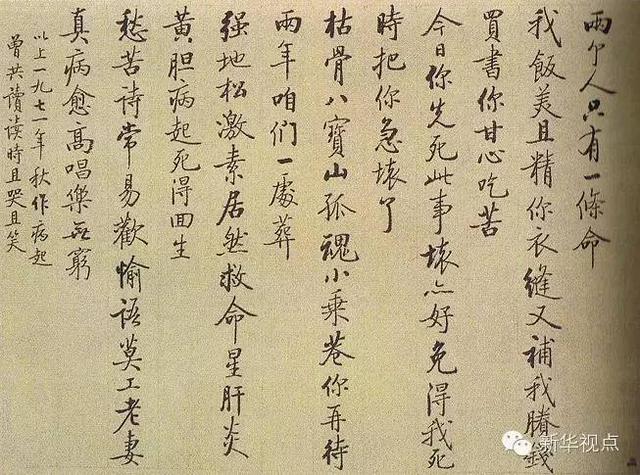 兩个人只有一條命
我飯美且精你衣縫又補我賸錢
買書你甘心吃苦
今日你先死此事壞亦好免得我死
時把你急壞了
枯骨八寶山孤魂小乘巷你再待
兩年咱們一處葬
强地松激素居然救命星肝炎
黄胆病起死得回生
愁苦诗常易歡愉語莫工老妻
真病愈高唱樂无窮
以上一九七一年秋作病起
曾共讀读時且哭且笑
新华视点